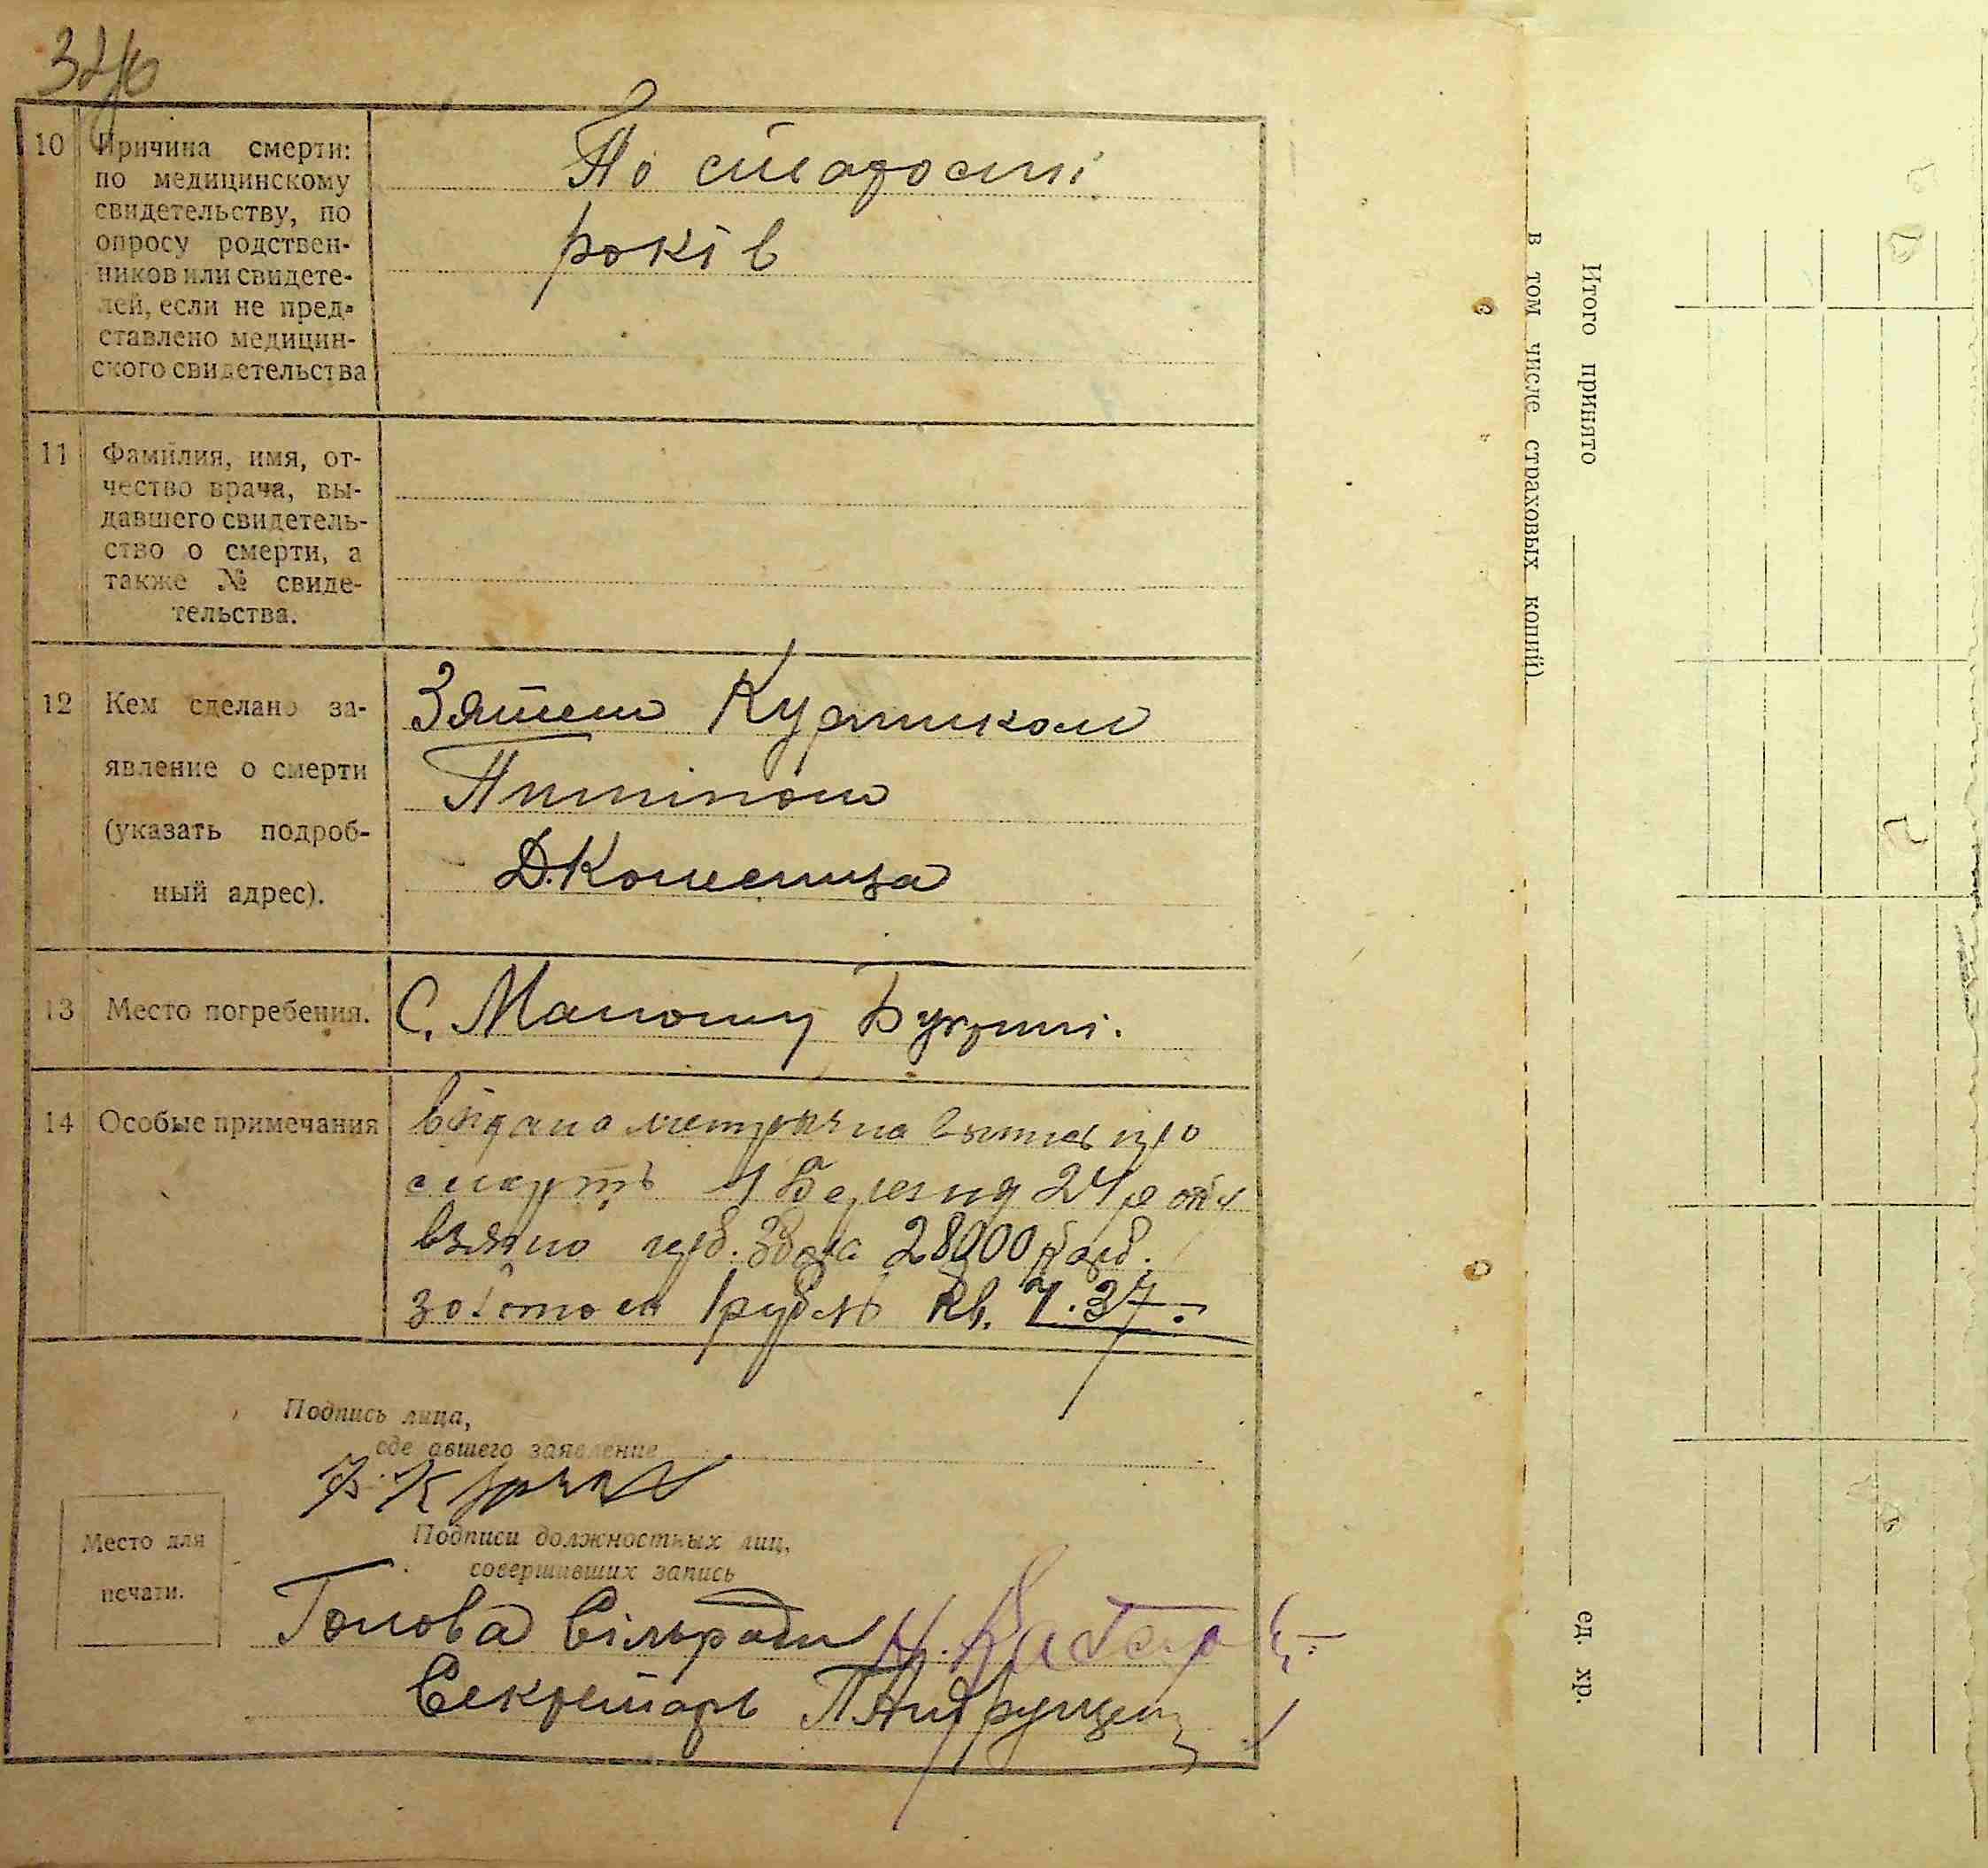 10 Причина смерти:
по медицинскому
свидетельству, по
опросу родствен-
ников или свидете-
лей, если не пред-
ставлено медицин-
ского свидетельства
По старості
років
11 Фамилия, имя, от-
чество врача, вы-
давшего свидетель-
ство о смерти, а
также № свиде-
тельства.
12 Кем сделано за-
явление о смерти
(указать подроб-
ный адрес).
Зятем
13 Место погребения.
С. Малому Букрині.
14 Особые примечания
видана на про
смерть 1 Березня 24 р
взято 28000 карб.
золотом 1 рубль Кв. 37.
Подпись лица,
сделавшего заявление
Подписи должностных лиц,
совершивших запись
Место для
печати.
Голова Сільради
Секретарь
Итого принято ед. хр.
в том числе страховых копий).